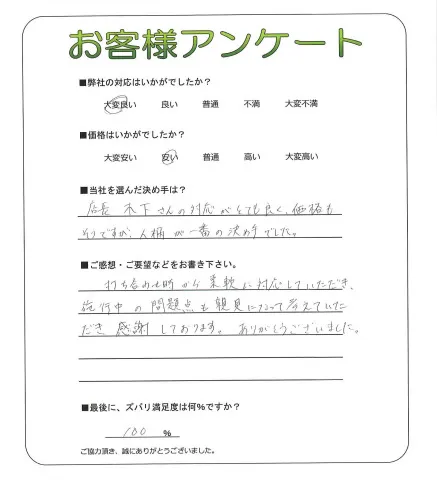 お客様アンケート
■弊社の対応はいかがでしたか？
大変良い 良い 普通 不満 大変不満
■価格はいかがでしたか？
大変安い 安い 普通 高い 大変高い
■当社を選んだ決め手は？
店長 木下さんの対応がとても良く、価格も
そうですが、人柄が一番の決め手でした。
■ご感想・ご要望などをお書き下さい。
打ち合わせ時から柔軟に対応していただき、
施行中の問題点も親見になって考えていただ
だき 感謝しております。ありがとうございました。
■最後に、ズバリ満足度は何％ですか？
100 %
ご協力頂き、誠にありがとうございました。